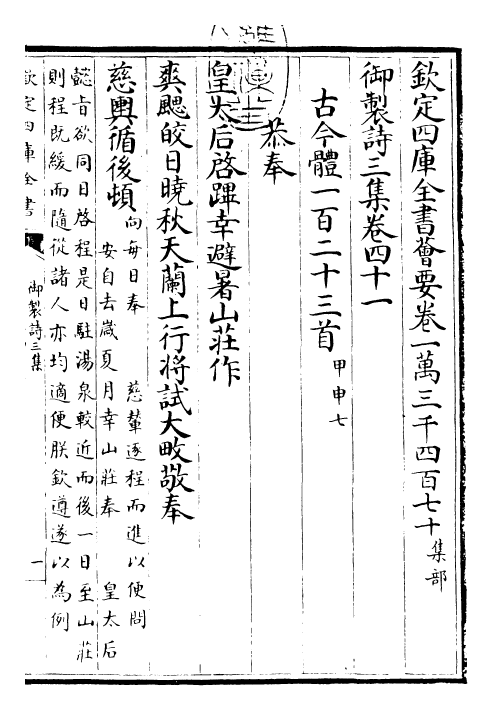 欽定四庫全書薈要卷一萬三千四百七十 集部
御製詩三集卷四十一
古今體一百二十三首 甲申七
恭奉
皇太后啓蹕幸避暑山莊作
爽颸皎日曉秋天蘭上行將試大畋敬奉
慈輿循後頓
向每日奉 慈輦逐程而進以便問
安自去歲夏月幸山莊奉 皇太后
懿旨欲同日啓程是日駐湯泉較近而後一日至山莊
則程既緩而隨從諸人亦均適便朕欽遵遂以為例
欽定四庫全書
御製詩三集
一